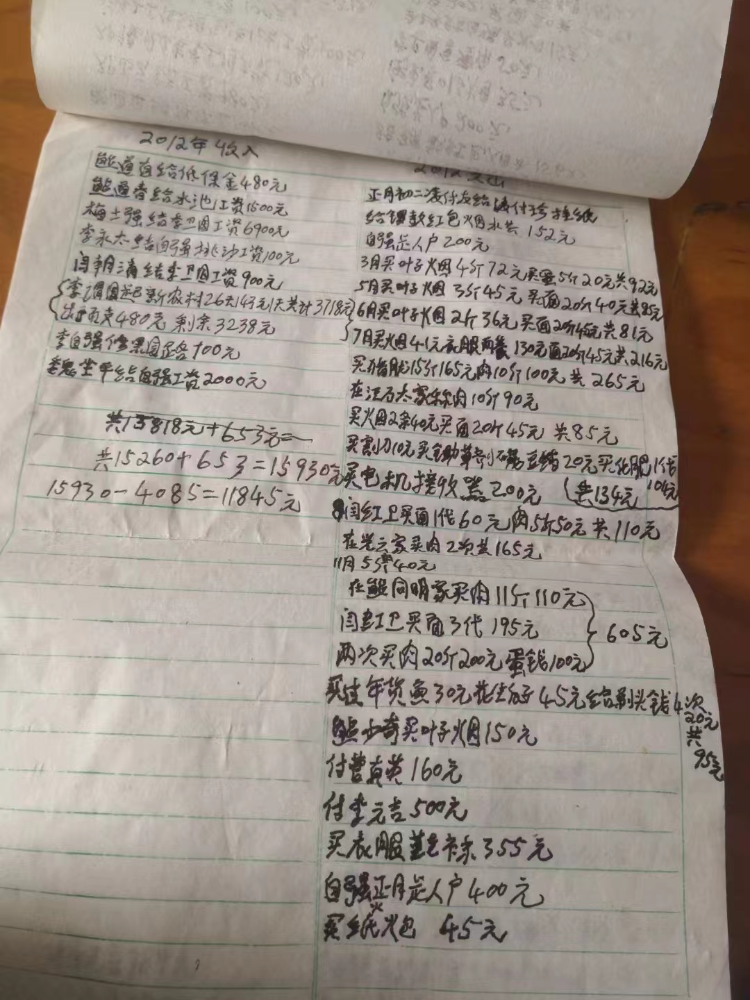 2012年收入
熊道自给低保金480元
熊道春给水池工资1500元
梅士强结李卫国工资6900元
李永太结自强挑沙工资100元
闫朝清结李卫国工资900元
李谓国 新农村26天143元1天共计3718元
480元 剩余3238元
李自强修果园路100元
给自强工资2000元
共15818元+653元=
共15260+653=15930元
15930-4085=11845元
2012支出
正月初二
红包烟水共152元
自强走人户200元
3月买叶子烟4斤72元买蛋5斤20元共92元
5月买叶子烟3斤45元买面20斤40元共85元
6月买叶子烟2斤36元买面20斤45元共81元
7月买火因41元衣服两套130元面20斤45元共216元
买猪肥15斤165元肉10斤100元共265元
在江石太家称肉10斤90元
买火因2条40元买面20斤45元 共85元
买割刀10元买 20元买化肥1代104元
共134元
买电机接收 200元
闫红卫买面1代60元肉5斤50元共110元
在 家买肉2次共165元
11月 40元
在熊同明家买肉11斤110元
闫红卫买面3代195元
两次买肉20斤200元蛋钱100元
605元
买过年货鱼30元花生 45元给剃头钱4次20元
共95元
熊 奇买叶子烟150元
付曹真英160元
付李元吉500元
买衣服 355元
自强正月走人户400元
买纸火包 45元